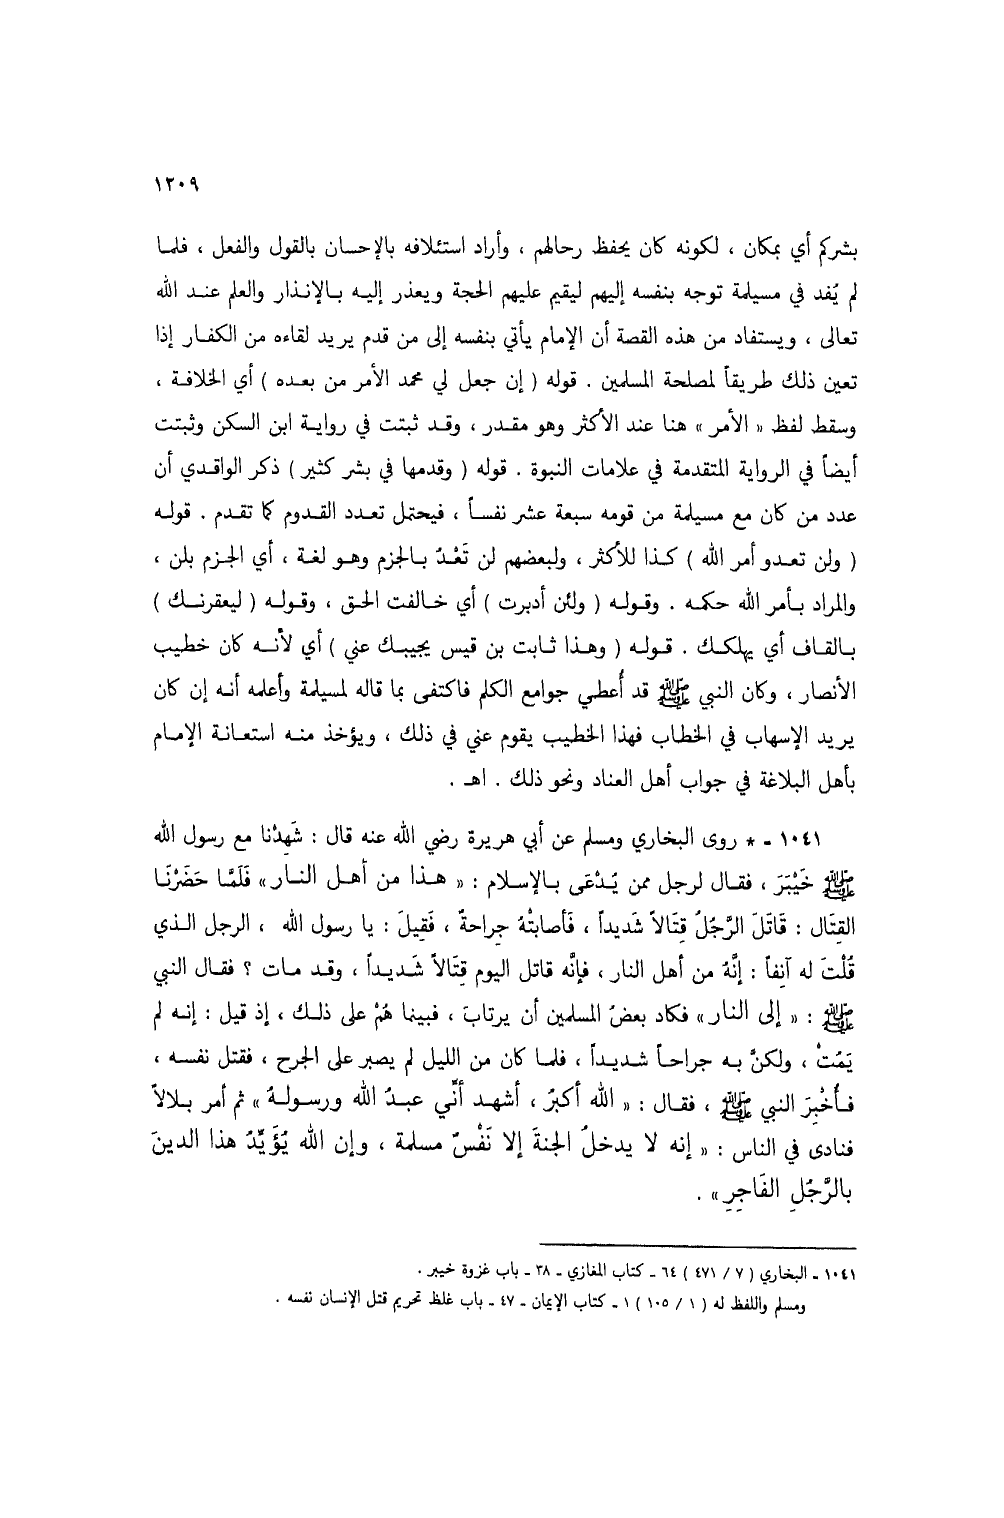 ١٢٠٩
بشركم أي بمكان ، لكونه كان يحفظ رحالهم ، وأراد استئلافه بالإحسان بالقول والفعل ، فلما
لم يُفد في مسيلمة توجه بنفسه إليهم ليقيم عليهم الحجة ويعذر إليه بالإنذار والعلم عند الله
تعالى ، ويستفاد من هذه القصة أن الإمام يأتي بنفسه إلى من قدم يريد لقاءه من الكفار إذا
تعين ذلك طريقاً لمصلحة المسلمين . قوله ( إن جعل لي محمد الأمر من بعده ) أي الخلافة ،
وسقط لفظ « الأمر » هنا عند الأكثر وهو مقدر ، وقد ثبتت في رواية ابن السكن وثبتت
أيضاً في الرواية المتقدمة في علامات النبوة . قوله ( وقدمها في بشر كثير ) ذكر الواقدي أن
عدد من كان مع مسيلمة من قومه سبعة عشر نفساً ، فيحتمل تعدد القدوم كما تقدم . قوله
( ولن تعدو أمر الله ) كذا للأكثر ، ولبعضهم لن تَعْدُ بالجزم وهو لغة ، أي الجزم بلن ،
والمراد بأمر الله حكمه . وقوله ( ولئن أدبرت ) أي خالفت الحق ، وقوله ( ليعقرنك )
بالقاف أي يهلكك . قوله ( وهذا ثابت بن قيس يجيبك عني ) أي لأنه كان خطيب
الأنصار ، وكان النبي ﷺ قد أُعطي جوامع الكلم فاكتفى بما قاله لمسيلمة وأعلمه أنه إن كان
يريد الإسهاب في الخطاب فهذا الخطيب يقوم عني في ذلك ، ويؤخذ منه استعانة الإمام
بأهل البلاغة في جواب أهل العناد ونحو ذلك . اهـ .
١٠٤١ - * روى البخاري ومسلم عن أبي هريرة رضي الله عنه قال : شَهِدْنا مع رسول الله
ﷺ خَيْبَرَ ، فقال لرجل ممن يُدْعَى بالإسلام : « هذا من أهل النار » فَلَمَّا حَضَرْنَا
القِتَال : قَاتَلَ الرَّجُلُ قِتَالاً شَديداً ، فَأصابتْهُ جِراحةٌ ، فَقِيلَ : يا رسول الله ، الرجل الذي
قُلْتَ له آنِفاً : إنَّهُ من أهل النار ، فإنَّه قاتل اليوم قِتَالاً شَديداً ، وقد مات ؟ فقال النبي
ﷺ : « إلى النار » فكاد بعضُ المسلمين أن يرتابَ ، فبينما هُمْ على ذلك ، إذ قيل : إنه لم
يَمُتْ ، ولكنَّ به جراحاً شديداً ، فلما كان من الليل لم يصبر على الجرح ، فقتل نفسه ،
فأُخْبِرَ النبي ﷺ ، فقال : « الله أكبرُ ، أشهد أنِّي عبدُ الله ورسولهُ » ثم أمر بلالاً
فنادى في الناس : « إنه لا يدخلُ الجنةَ إلا نَفْسٌ مسلمة ، وإن الله يُؤَيِّدُ هذا الدينَ
بالرَّجُلِ الفَاجِرِ » .
١٠٤١ - البخاري ( ٧ / ٤٧١ ) ٦٤ - كتاب المغازي - ٣٨ - باب غزوة خيبر .
ومسلم واللفظ له ( ١ / ١٠٥ ) ١ - كتاب الإيمان - ٤٧ - باب غلظ تحريم قتل الإنسان نفسه .